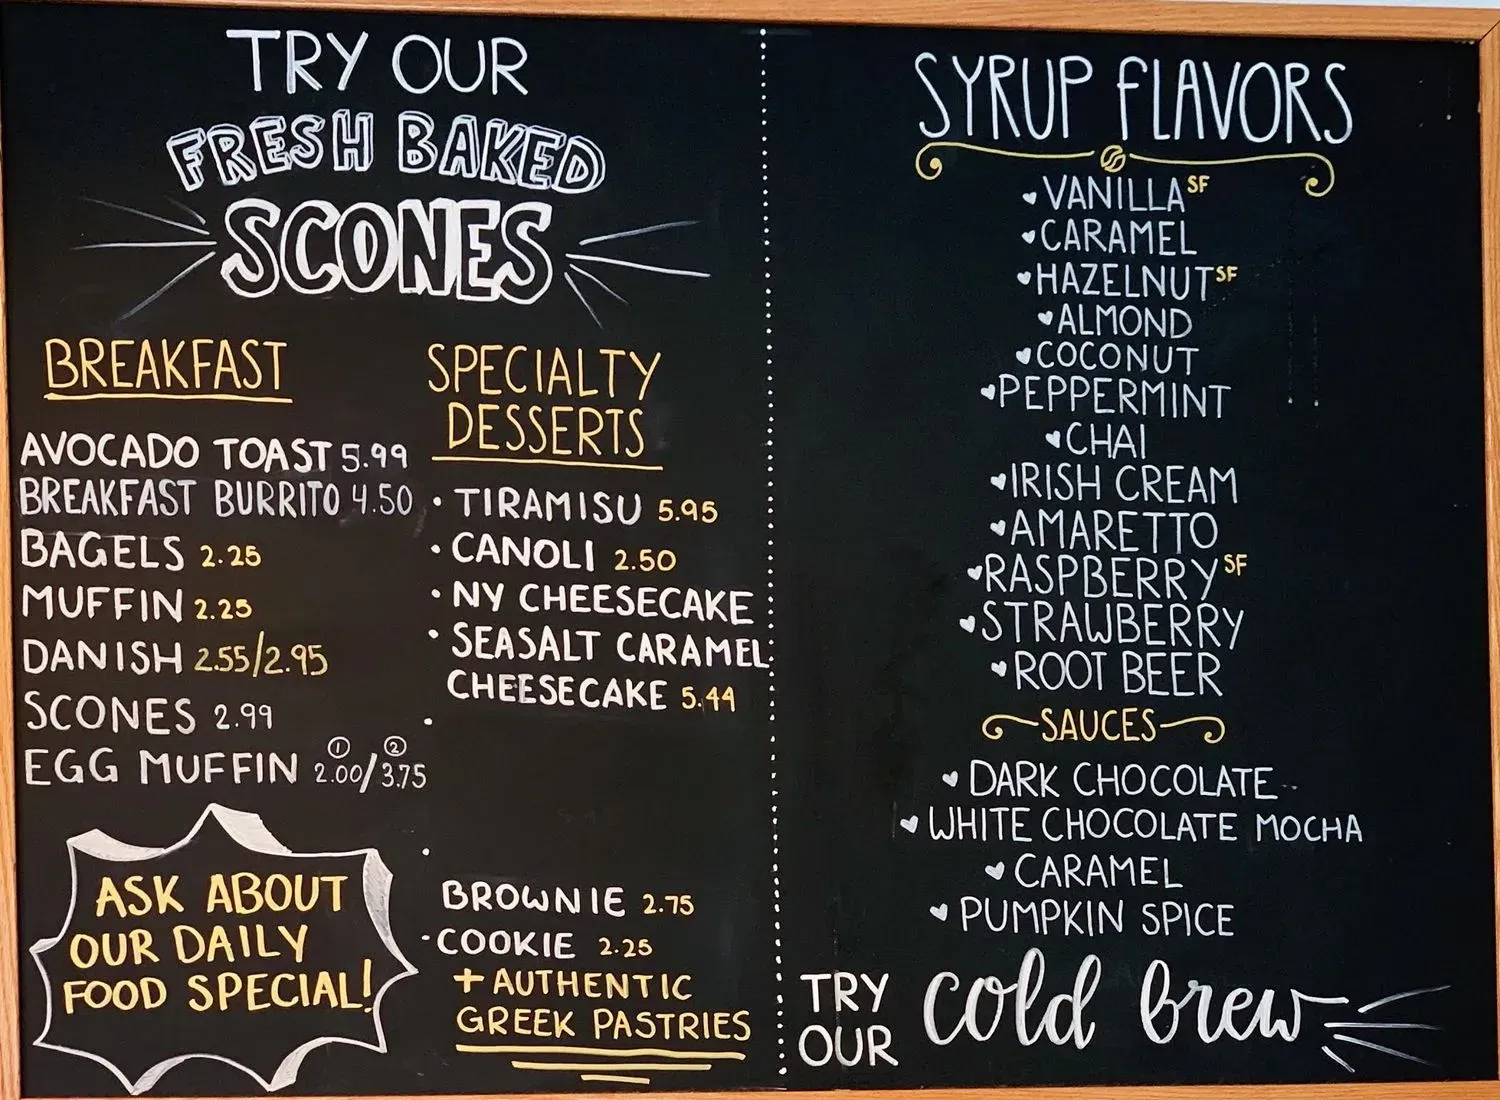 TRY OUR
FRESH BAKED
SCONES
BREAKFAST
AVOCADO TOAST 5.99
BREAKFAST BURRITO 4.50
BAGELS 2.25
MUFFIN 2.25
DANISH 2.55/2.95
SCONES 2.99
EGG MUFFIN ① 2.00/② 3.75
ASK ABOUT
OUR DAILY
FOOD SPECIAL!
SPECIALTY
DESSERTS
• TIRAMISU 5.95
• CANOLI 2.50
• NY CHEESECAKE
• SEASALT CARAMEL
CHEESECAKE 5.44
BROWNIE 2.75
• COOKIE 2.25
+ AUTHENTIC
GREEK PASTRIES
SYRUP FLAVORS
♥ VANILLA SF
♥ CARAMEL
♥ HAZELNUT SF
♥ ALMOND
♥ COCONUT
♥ PEPPERMINT
♥ CHAI
♥ IRISH CREAM
♥ AMARETTO
♥ RASPBERRY SF
♥ STRAWBERRY
♥ ROOT BEER
SAUCES
♥ DARK CHOCOLATE
♥ WHITE CHOCOLATE MOCHA
♥ CARAMEL
♥ PUMPKIN SPICE
TRY
OUR cold brew